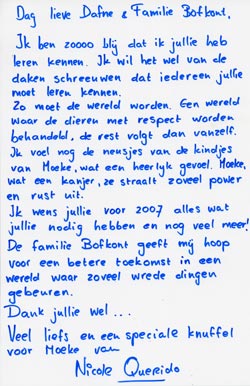 Dag lieve Dafne & Familie Bofkont,
Ik ben zoooo blij dat ik jullie heb
leren kennen. Ik wil het wel van de
daken schreeuwen dat iedereen jullie
moet leren kennen.
Zo moet de wereld worden. Een wereld
waar de dieren met respect worden
behandeld, de rest volgt dan vanzelf.
Ik voel nog de neusjes van de kindjes
van Moeke, wat een heerlyk gevoel. Moeke,
wat een kanjer, ze straalt zoveel power
en rust uit.
Ik wens jullie voor 2007 alles wat
jullie nodig hebben en nog veel meer!
De familie Bofkont geeft mij hoop
voor een betere toekomst in een
wereld waar zoveel wrede dingen
gebeuren.
Dank jullie wel...
Veel liefs en een speciale knuffel
voor Moeke van
Nicole Querido